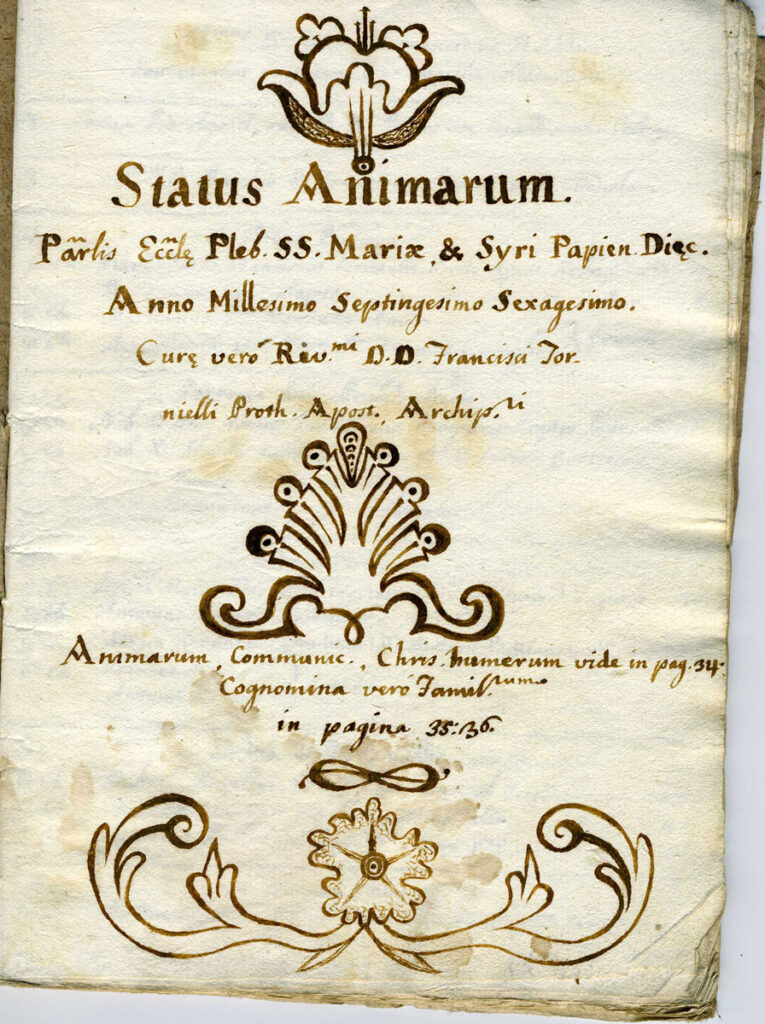 Status Animarum.
Par̃lis Ecc̃lę Pleb. SS. Mariæ, & Syri Papien. Dięc.
Anno Millesimo Septingesimo Sexagesimo.
Curę verò Rev.mi D.D. Francisci Tor-
nielli Proth. Apost. Archip.ti
Animarum, Communic., Chris. numerum vide in pag. 34.
Cognomina verò Famil.rum
in pagina 35:36.